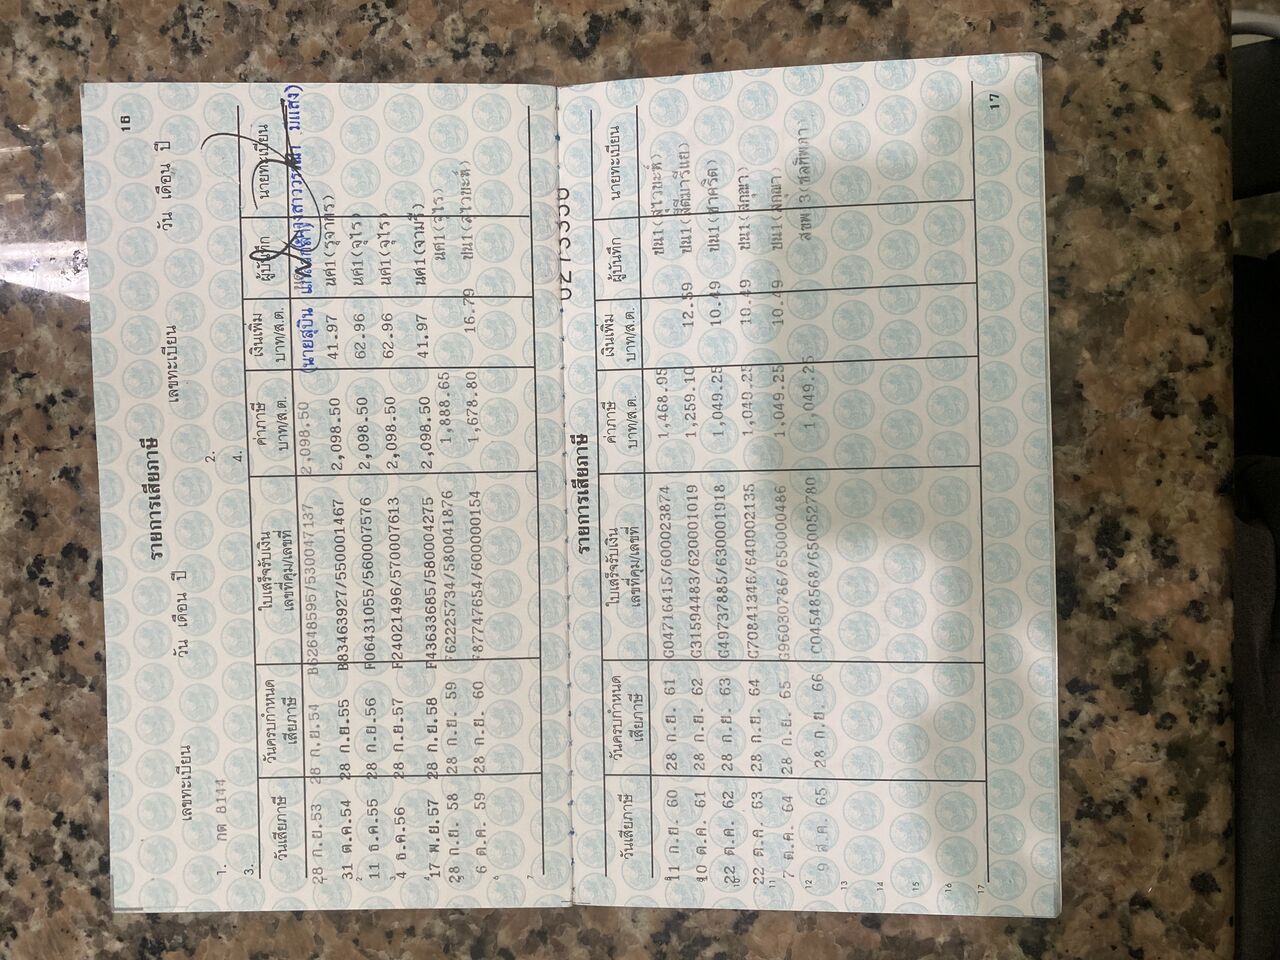 16
รายการเสียภาษี
เลขทะเบียน วัน เดือน ปี เลขทะเบียน วัน เดือน ปี
1. กต 8144 2.
3. 4.
วันเสียภาษี วันครบกำหนดเสียภาษี ใบเสร็จรับเงิน เลขที่คุม/เลขที่ ค่าภาษี บาท/ส.ต. เงินเพิ่ม บาท/ส.ต. ผู้บันทึก นายทะเบียน
28 ก.ย.53 28 ก.ย.54 B62648595/530047137 2,098.50
31 ต.ค.54 28 ก.ย.55 B83463927/550001467 2,098.50 41.97 นค1(รุจาภร)
11 ธ.ค.55 28 ก.ย.56 F06431055/560007576 2,098.50 62.96 นค1(จุไร)
4 ธ.ค.56 28 ก.ย.57 F24021496/570007613 2,098.50 62.96 นค1(จุไร)
17 พ.ย.57 28 ก.ย.58 F43633685/580004275 2,098.50 41.97 นค1(จามรี)
28 ก.ย. 58 28 ก.ย. 59 F62225734/580041876 1,888.65 นค1(จุไร)
6 ต.ค. 59 28 ก.ย. 60 F87747654/600000154 1,678.80 16.79
7
รายการเสียภาษี
วันเสียภาษี วันครบกำหนดเสียภาษี ใบเสร็จรับเงิน เลขที่คุม/เลขที่ ค่าภาษี บาท/ส.ต. เงินเพิ่ม บาท/ส.ต. ผู้บันทึก นายทะเบียน
11 ก.ย. 60 28 ก.ย. 61 G04716415/600023874 1,468.95
10 ต.ค. 61 28 ก.ย. 62 G31594483/620001019 1,259.10 12.59
22 ต.ค. 62 28 ก.ย. 63 G49737885/630001918 1,049.25 10.49 ขน1(ชาคริต)
22 ต.ค. 63 28 ก.ย. 64 G70841346/640002135 1,049.25 10.49
7 ต.ค. 64 28 ก.ย. 65 G96030786/650000486 1,049.25 10.49
9 ส.ค. 65 28 ก.ย. 66 C04548568/650052780 1,049.25
13
14
15
16
17
17